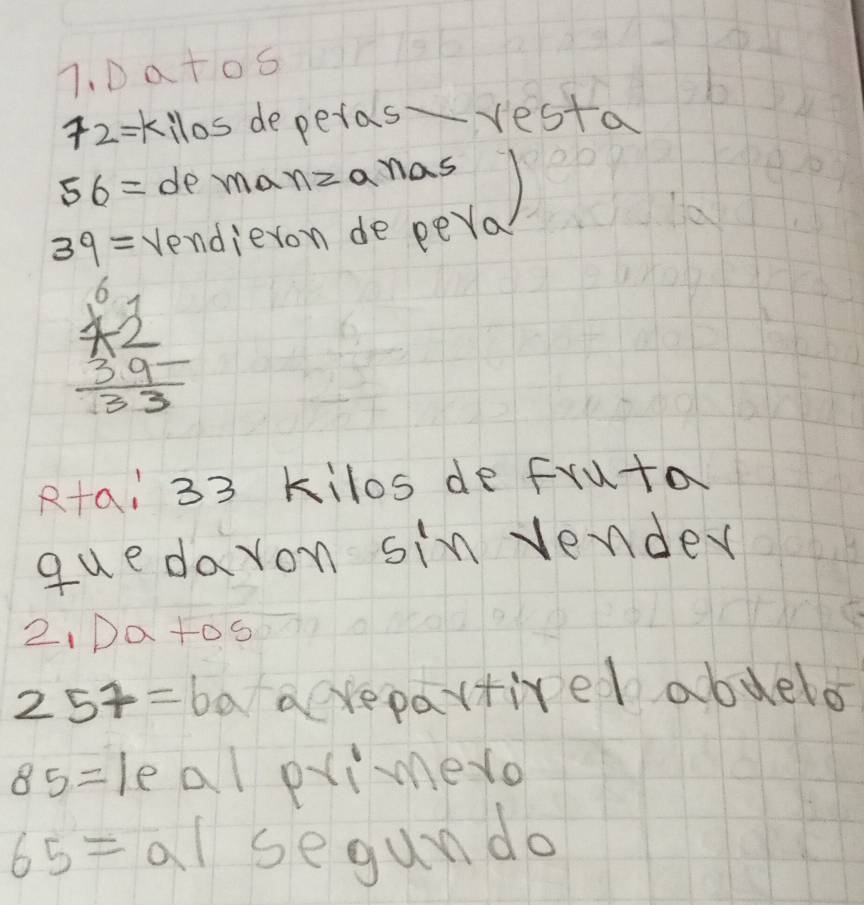 1. Datos
72=kilos de peras - resta
56=de manzanas
39=vendieron de pera
6 1
72
39-
33
Rta: 33 kilos de fruta
quedaron sin vender
2. Datos
257=ba a repartir el abuelo
85=le al primero
65=al segundo